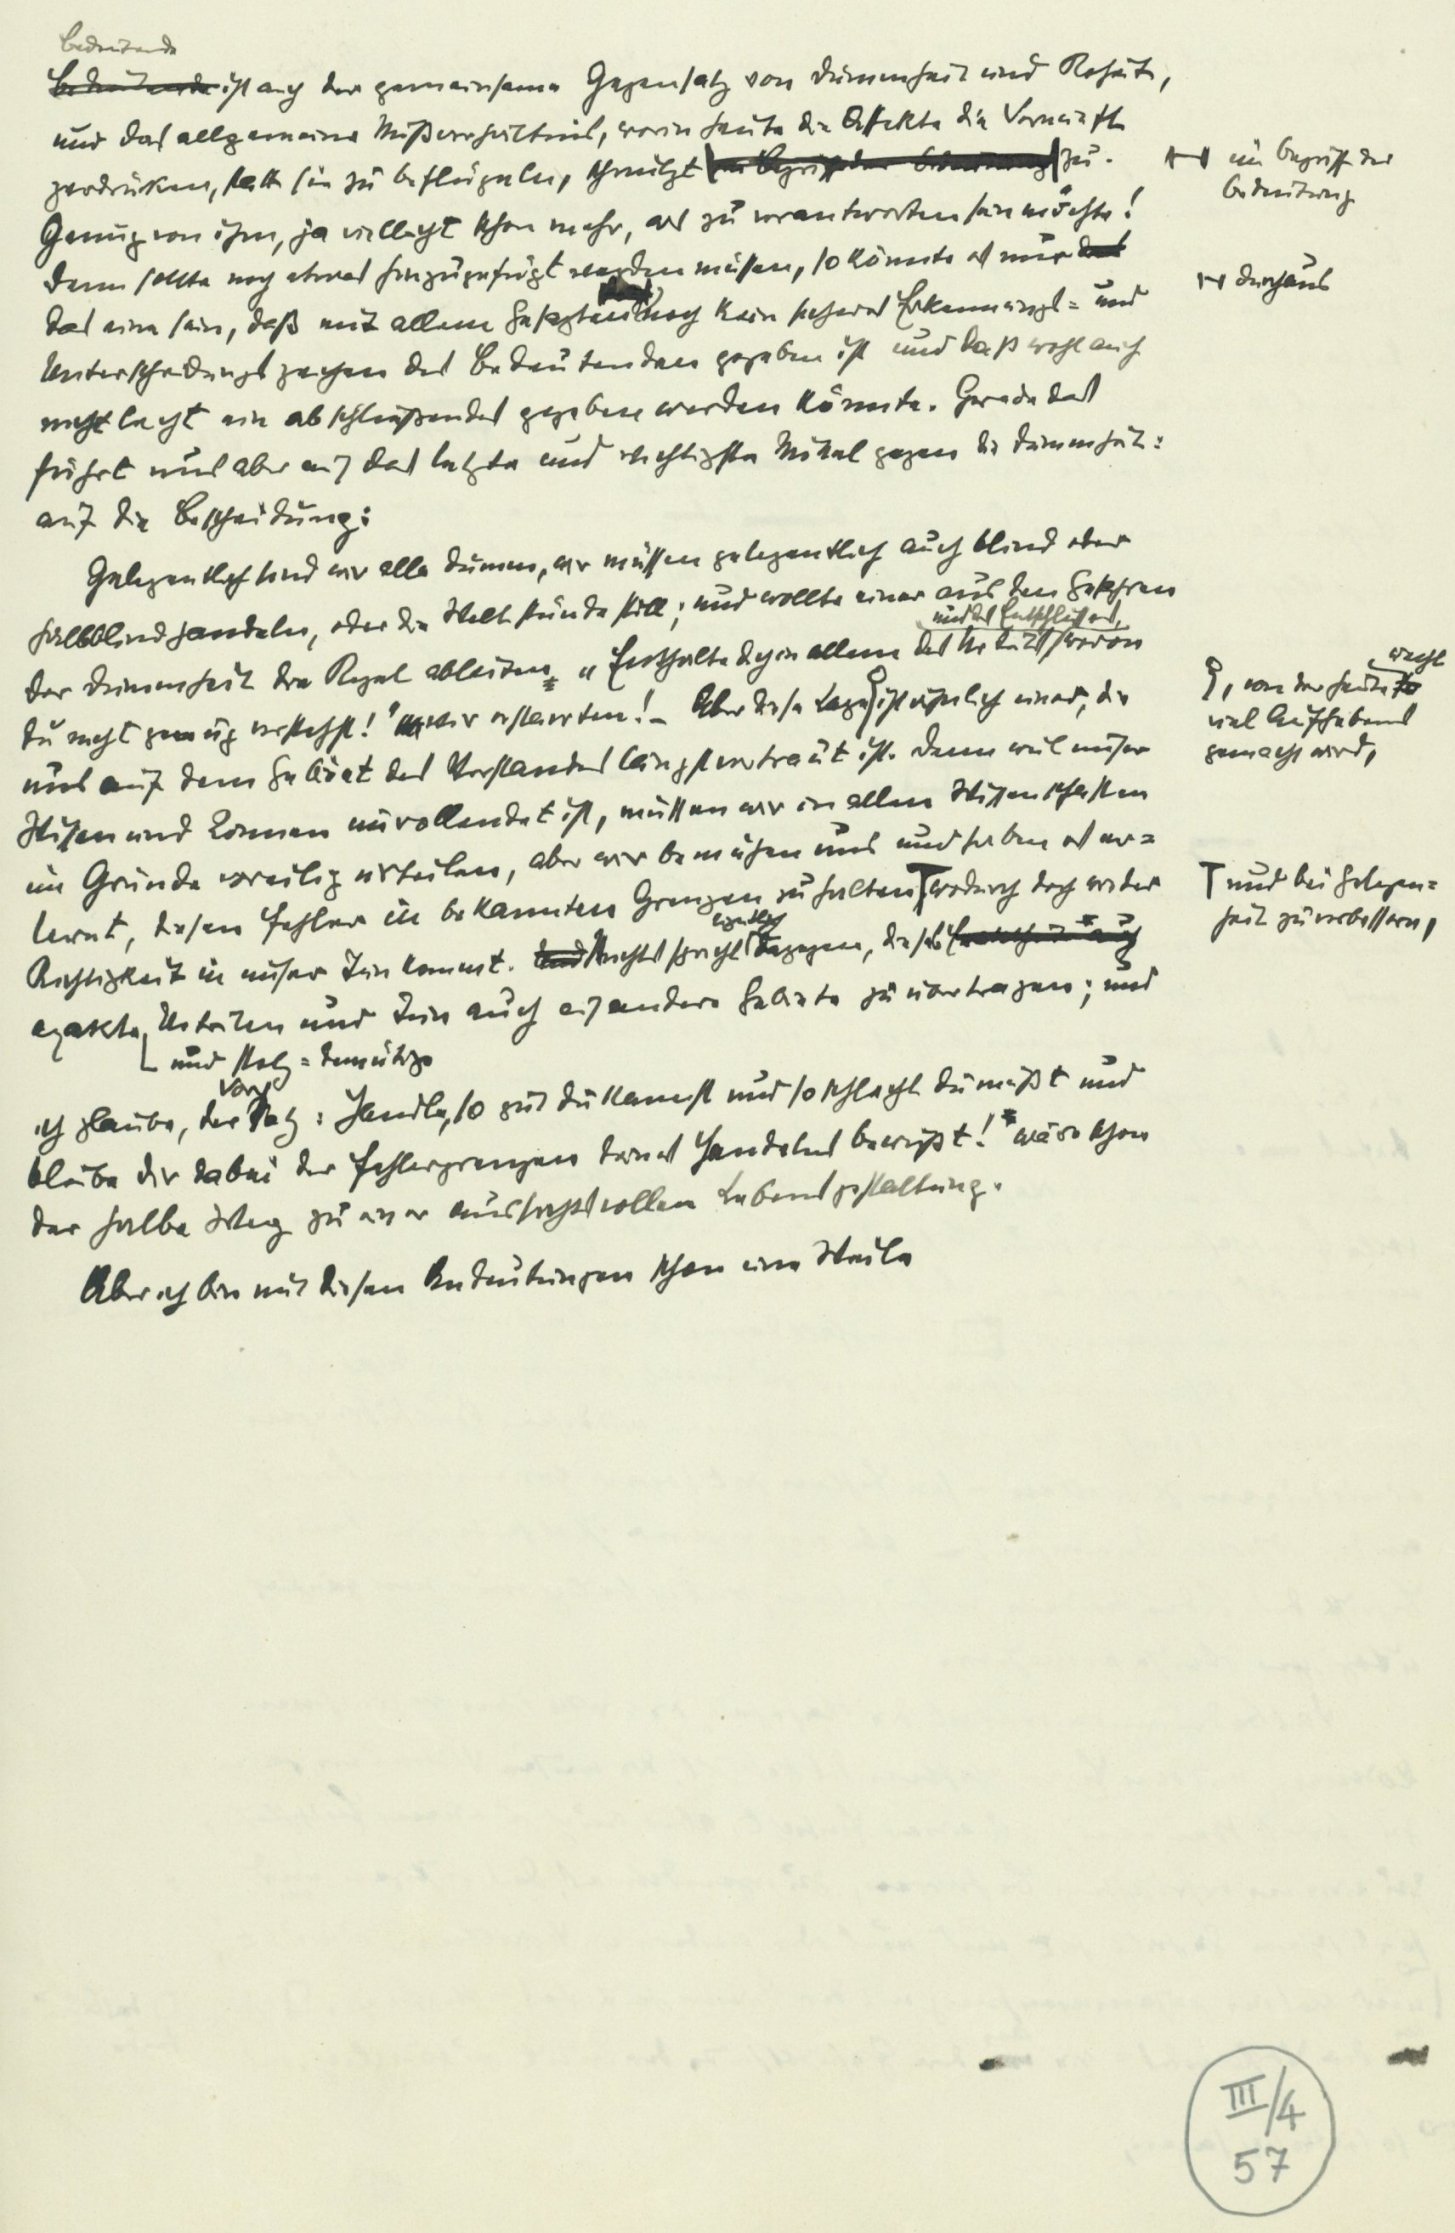 Bedeutende
Bedeutende ist auch der gemeinsame Gegensatz von Dummheit und Roheit,
und das allgemeine Mißverhältnis, worin heute die Affekte die Vernunft
zerdrücken, statt sie zu beflügeln, schmilzt im Begriff der Bedeutung zu.
⊢⊣ im Begriff der
Bedeutung
Genug von ihm, ja vielleicht schon mehr, als zu verantworten sein möchte!
Denn sollte noch etwas hinzugefügt werden müssen, so könnte es nur das
⊢⊣ durchaus
das eine sein, daß mit allem Gesagten noch kein sicheres Erkennungs- und
Unterscheidungszeichen des Bedeutenden gegeben ist und daß wohl auch
nicht leicht ein abschließendes gegeben werden könnte. Gerade das
führt uns aber auf das letzte und wichtigste Mittel gegen die Dummheit:
auf die Bescheidung:
Gelegentlich sind wir alle dumm, wir müssen gelegentlich auch blind oder
halbblind handeln, oder die Welt stünde still; und wollte einer aus den Gefahren
und des Entschlusses,
der Dummheit die Regel ableiten: „Enthalte dich in allem des Urteils, wovon
du nicht genug verstehst!" wir erstarrten! – Aber diese Lage ist ähnlich einer, die
, von der heute wohl
viel Aufhebens
gemacht wird,
uns auf dem Gebiet des Verstandes längst vertraut ist. Denn weil unser
Wissen und Können unvollendet ist, müssen wir in allen Wissenschaften
im Grunde voreilig urteilen, aber wir bemühen uns und haben es er=
lernt, diesen Fehler in bekannten Grenzen zu halten wodurch doch wieder
T und bei Gelegen=
heit zu verbessern,
Richtigkeit in unser Tun kommt. Und Nichts spricht eigentlich dagegen, dieses
exakte Urteilen und Tun auch auf andere Gebiete zu übertragen; und
und stolz=demütige
ich glaube, der Vorsatz: Handle, so gut du kannst und so schlecht du mußt und
bleibe dir dabei der Fehlergrenzen deines Handelns bewußt! wäre schon
der halbe Weg zu einer aussichtsvollen Lebensgestaltung.
Aber ich bin mit diesen Andeutungen schon eine Weile
III/4
57